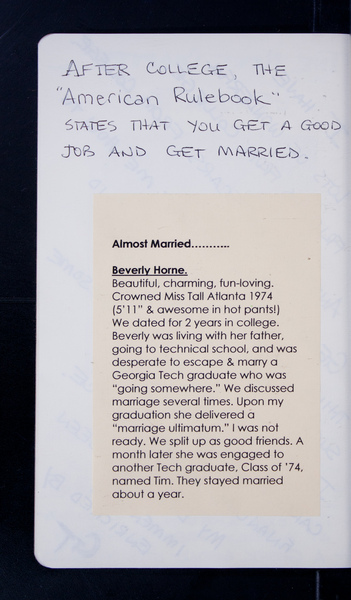 AFTER COLLEGE, THE
"American Rulebook"
STATES THAT YOU GET A GOOD
JOB AND GET MARRIED.
Almost Married...........
Beverly Horne.
Beautiful, charming, fun-loving.
Crowned Miss Tall Atlanta 1974
(5'11" & awesome in hot pants!)
We dated for 2 years in college.
Beverly was living with her father,
going to technical school, and was
desperate to escape & marry a
Georgia Tech graduate who was
"going somewhere." We discussed
marriage several times. Upon my
graduation she delivered a
"marriage ultimatum." I was not
ready. We split up as good friends. A
month later she was engaged to
another Tech graduate, Class of '74,
named Tim. They stayed married
about a year.